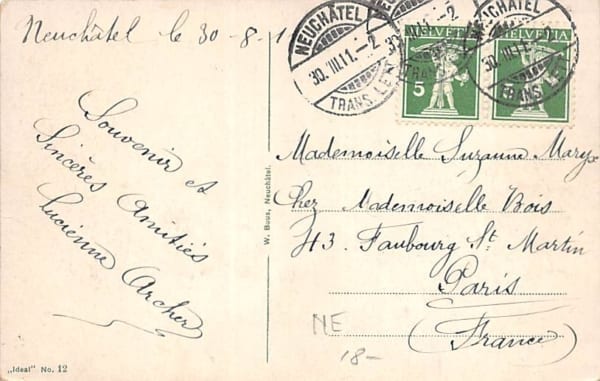 Neuchâtel le 30-8-1
Souvenir et
Sincères Amitiés
Lucienne Archer
NEUCHÂTEL
30.III.11.-2
TRANS. LET
NEUCHÂTEL
30.III.11.-2
TRANS. LET
HELVETIA
5
HELVETIA
Mademoiselle Suzanne Maryx
Chez Mademoiselle Bois
43. Faubourg St. Martin
Paris
(France)
NE
18-
W. Buus, Neuchâtel.
„Ideal" No. 12